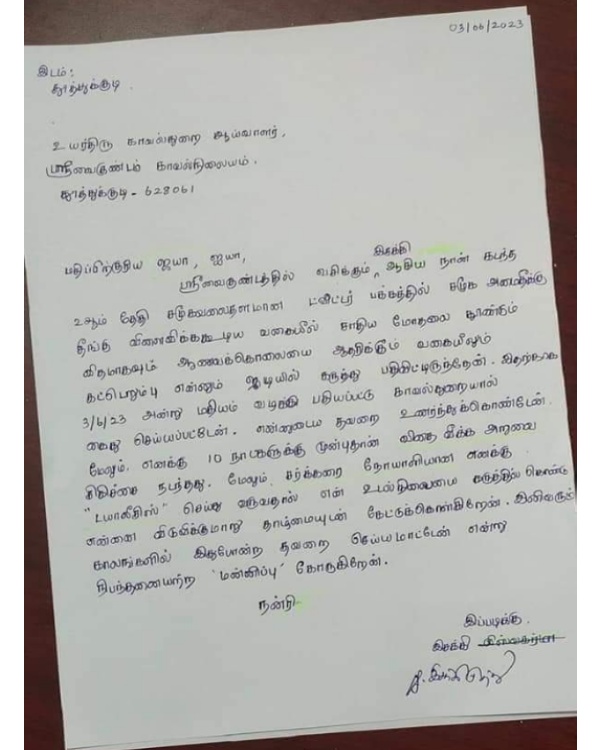 03/06/2023
இடம்:
தூத்துக்குடி.
உயர்திரு காவல்துறை ஆய்வாளர்,
ஸ்ரீவைகுண்டம் காவல்நிலையம்.
தூத்துக்குடி - 628061
மதிப்பிற்குரிய ஐயா, ஐயா,
இசக்கி
ஸ்ரீவைகுண்டத்தில் வசிக்கும் ^ ஆகிய நான் கடந்த
உஆம் தேதி சமூகவலைதளமான ட்விட்டர் பக்கத்தில் சமூக அமைதிக்கு
தீங்கு விளைவிக்ககூடிய வகையில் சாதிய மோதலை தூண்டும்
விதமாகவும் ஆணவக்கொலையை ஆதரிக்கும் வகையிலும்
கட்டெறும்பு என்னும் ஐடியில் கருத்து பதிவிட்டிருந்தேன். இதற்காக
3/6/23 அன்று மதியம் வழக்கு பதியப்பட்டு காவல்துறையால்
கைது செய்யப்பட்டேன். என்னுடைய தவறை உணர்ந்துக்கொண்டேன்.
மேலும், எனக்கு 10 நாட்களுக்கு முன்புதான் விதை வீக்க அறுவை
சிகிச்சை நடந்தது. மேலும் சர்க்கரை நோயாளியான எனக்கு
"டயாலிசிஸ்" செய்து வருவதால் என் உடல்நிலையை கருத்தில் கொண்டு
என்னை விடுவிக்குமாறு தாழ்மையுடன் கேட்டுக்கொள்கிறேன். இனிவரும்
காலங்களில் இதுபோன்ற தவறை செய்யமாட்டேன் என்று
நிபந்தனையற்ற 'மன்னிப்பு' கோருகிறேன்.
நன்றி
இப்படிக்கு
இசக்கி